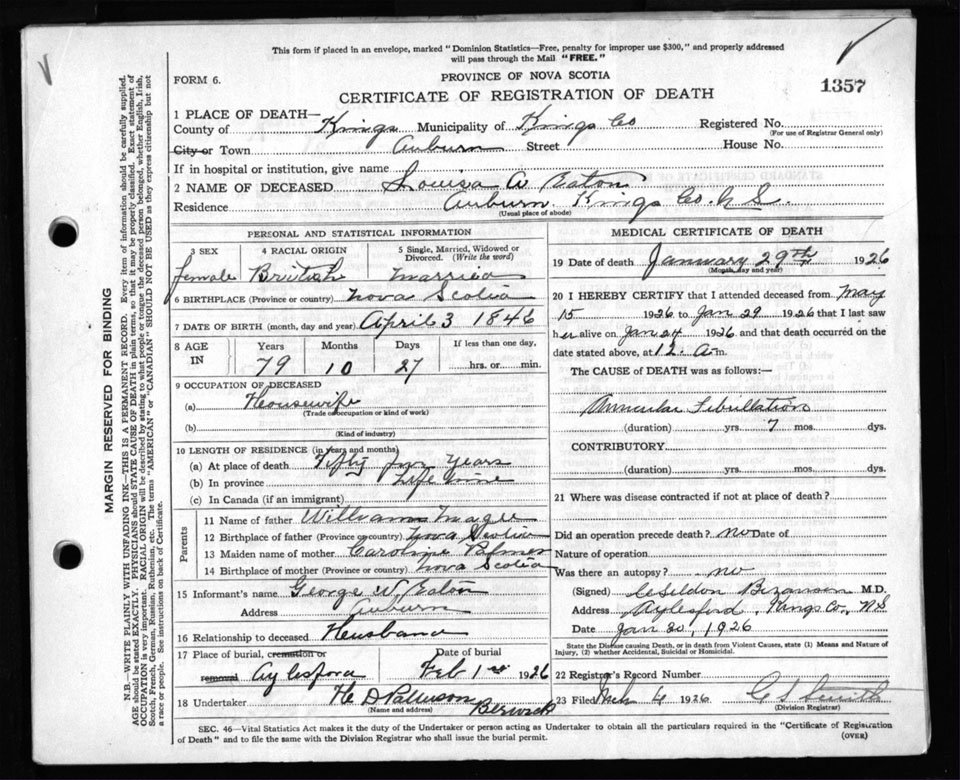 This form if placed in an envelope, marked "Dominion Statistics—Free, penalty for improper use $300," and properly addressed
will pass through the Mail "FREE."
FORM 6.
PROVINCE OF NOVA SCOTIA
1357
CERTIFICATE OF REGISTRATION OF DEATH
1 PLACE OF DEATH—
County of Kings Municipality of Kings Co Registered No.
(For use of Registrar General only)
City or Town Auburn Street House No.
If in hospital or institution, give name
2 NAME OF DECEASED Louisa A Eaton
Residence Auburn. Kings Co. N S.
(Usual place of abode)
PERSONAL AND STATISTICAL INFORMATION
3 SEX 4 RACIAL ORIGIN 5 Single, Married, Widowed or
Divorced. (Write the word)
female British married
6 BIRTHPLACE (Province or country) Nova Scotia
7 DATE OF BIRTH (month, day and year) April 3 1846
8 AGE IN Years Months Days If less than one day,
79 10 27 hrs. or min.
9 OCCUPATION OF DECEASED
(a) Housewife
(Trade or occupation or kind of work)
(b)
(Kind of industry)
10 LENGTH OF RESIDENCE (in years and months)
(a) At place of death Fifty Years
(b) In province Life time
(c) In Canada (if an immigrant)
Parents
11 Name of father William Magee
12 Birthplace of father (Province or country) Nova Scotia
13 Maiden name of mother Caroline Palmer
14 Birthplace of mother (Province or country) Nova Scotia
15 Informant's name George W Eaton
Address Auburn
16 Relationship to deceased Husband
17 Place of burial, cremation or Date of burial
removal Aylesford Feb 1 1926
18 Undertaker H D Patterson Berwick
(Name and address)
MEDICAL CERTIFICATE OF DEATH
19 Date of death January 29th 1926
(Month, day and year)
20 I HEREBY CERTIFY that I attended deceased from May
15 1926 to Jan 29 1926 that I last saw
her alive on Jan 24 1926 and that death occurred on the
date stated above, at 12. A m.
The CAUSE of DEATH was as follows:—
Auricular Fibrillation
(duration) yrs. 7 mos. dys.
CONTRIBUTORY.
(duration) yrs. mos. dys.
21 Where was disease contracted if not at place of death?
Did an operation precede death? no Date of
Nature of operation
Was there an autopsy? no
(Signed) Bezanson M.D.
Address Aylesford, Kings Co., N S
Date Jan 30, 1926
State the Disease causing Death, or in death from Violent Causes, state (1) Means and Nature of
Injury, (2) whether Accidental, Suicidal or Homicidal.
22 Registrar's Record Number
23 Filed 4 1926 Smith
(Division Registrar)
SEC. 46—Vital Statistics Act makes it the duty of the Undertaker or person acting as Undertaker to obtain all the particulars required in the "Certificate of Registration
of Death" and to file the same with the Division Registrar who shall issue the burial permit. (OVER)
MARGIN RESERVED FOR BINDING
N.B.—WRITE PLAINLY WITH UNFADING INK—THIS IS A PERMANENT RECORD. Every item of information should be carefully supplied.
AGE should be stated EXACTLY. PHYSICIANS should STATE CAUSE OF DEATH in plain terms, so that it may be properly classified. Exact statement of
OCCUPATION is very important. RACIAL ORIGIN will be described by stating to what people or tongue the deceased person belonged, whether English, Irish,
Scotch, French, German, Russian, Ruthenian, etc. The terms "AMERICAN" or "CANADIAN" SHOULD NOT BE USED as they express citizenship but not
a race or people. See instructions on back of Certificate.